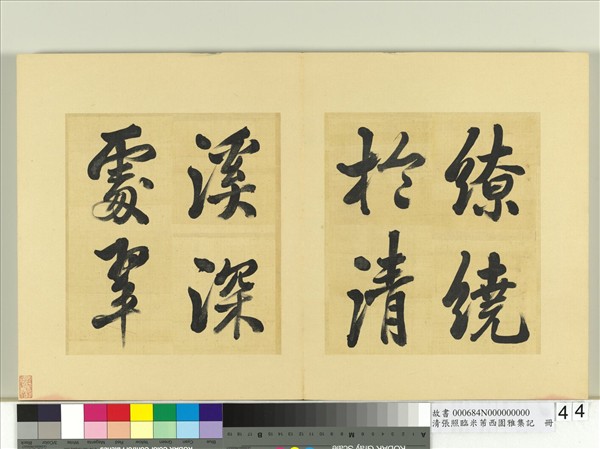 繚繞
於清
溪深
處翠
故書 000684N000000000
清張照臨米芾西園雅集記 冊
44